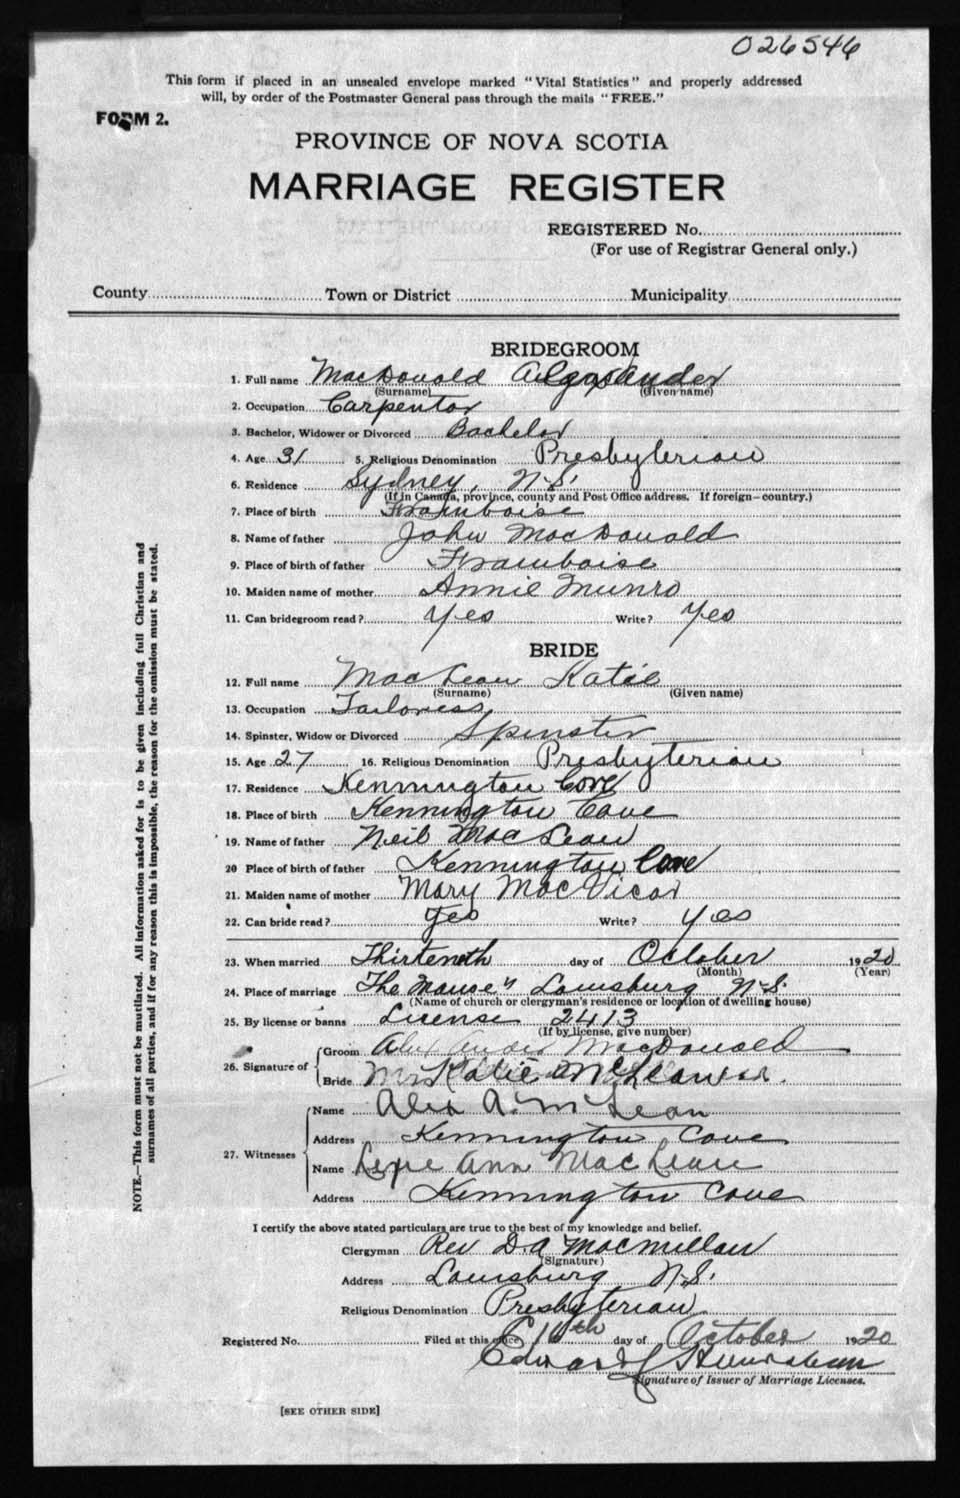 026546
This form if placed in an unsealed envelope marked "Vital Statistics" and properly addressed
will, by order of the Postmaster General pass through the mails "FREE."
FORM 2.
PROVINCE OF NOVA SCOTIA
MARRIAGE REGISTER
REGISTERED No.
(For use of Registrar General only.)
County Town or District Municipality
BRIDEGROOM
1. Full name MacDonald Alexander
(Surname) (Given name)
2. Occupation Carpentor
3. Bachelor, Widower or Divorced Bachelor
4. Age 31 5. Religious Denomination Presbyterian
6. Residence Sydney, N.S.
(If in Canada, province, county and Post Office address. If foreign—country.)
7. Place of birth Framboise
8. Name of father John MacDonald
9. Place of birth of father Framboise
10. Maiden name of mother Annie Munro
11. Can bridegroom read? Yes Write? Yes
BRIDE
12. Full name MacLean Katie
(Surname) (Given name)
13. Occupation Tailoress
14. Spinster, Widow or Divorced Spinster
15. Age 27 16. Religious Denomination Presbyterian
17. Residence Kennington Cove
18. Place of birth Kennington Cove
19. Name of father Neil MacLean
20 Place of birth of father Kennington Cove
21. Maiden name of mother Mary MacVicar
22. Can bride read? Yes Write? Yes
23. When married Thirtenth day of October 1920
(Month) (Year)
24. Place of marriage The Manse, Louisburg N.S.
(Name of church or clergyman's residence or location of dwelling house)
25. By license or banns License 2413
(If by license, give number)
26. Signature of
Groom Alexander MacDonald
Bride Katie
27. Witnesses
Name Alex A. McLean
Address Kennington Cove
Name Ann MacLean
Address Kennington Cove
I certify the above stated particulars are true to the best of my knowledge and belief.
Clergyman Rev D. A Macmillan
(Signature)
Address Louisburg N.S.
Religious Denomination Presbyterian
Registered No. Filed at this office 16th day of October 1920
Edward
Signature of Issuer of Marriage Licenses.
[SEE OTHER SIDE]
NOTE.—This form must not be mutilated. All information asked for is to be given including full Christian and
surnames of all parties, and if for any reason this is impossible, the reason for the omission must be stated.